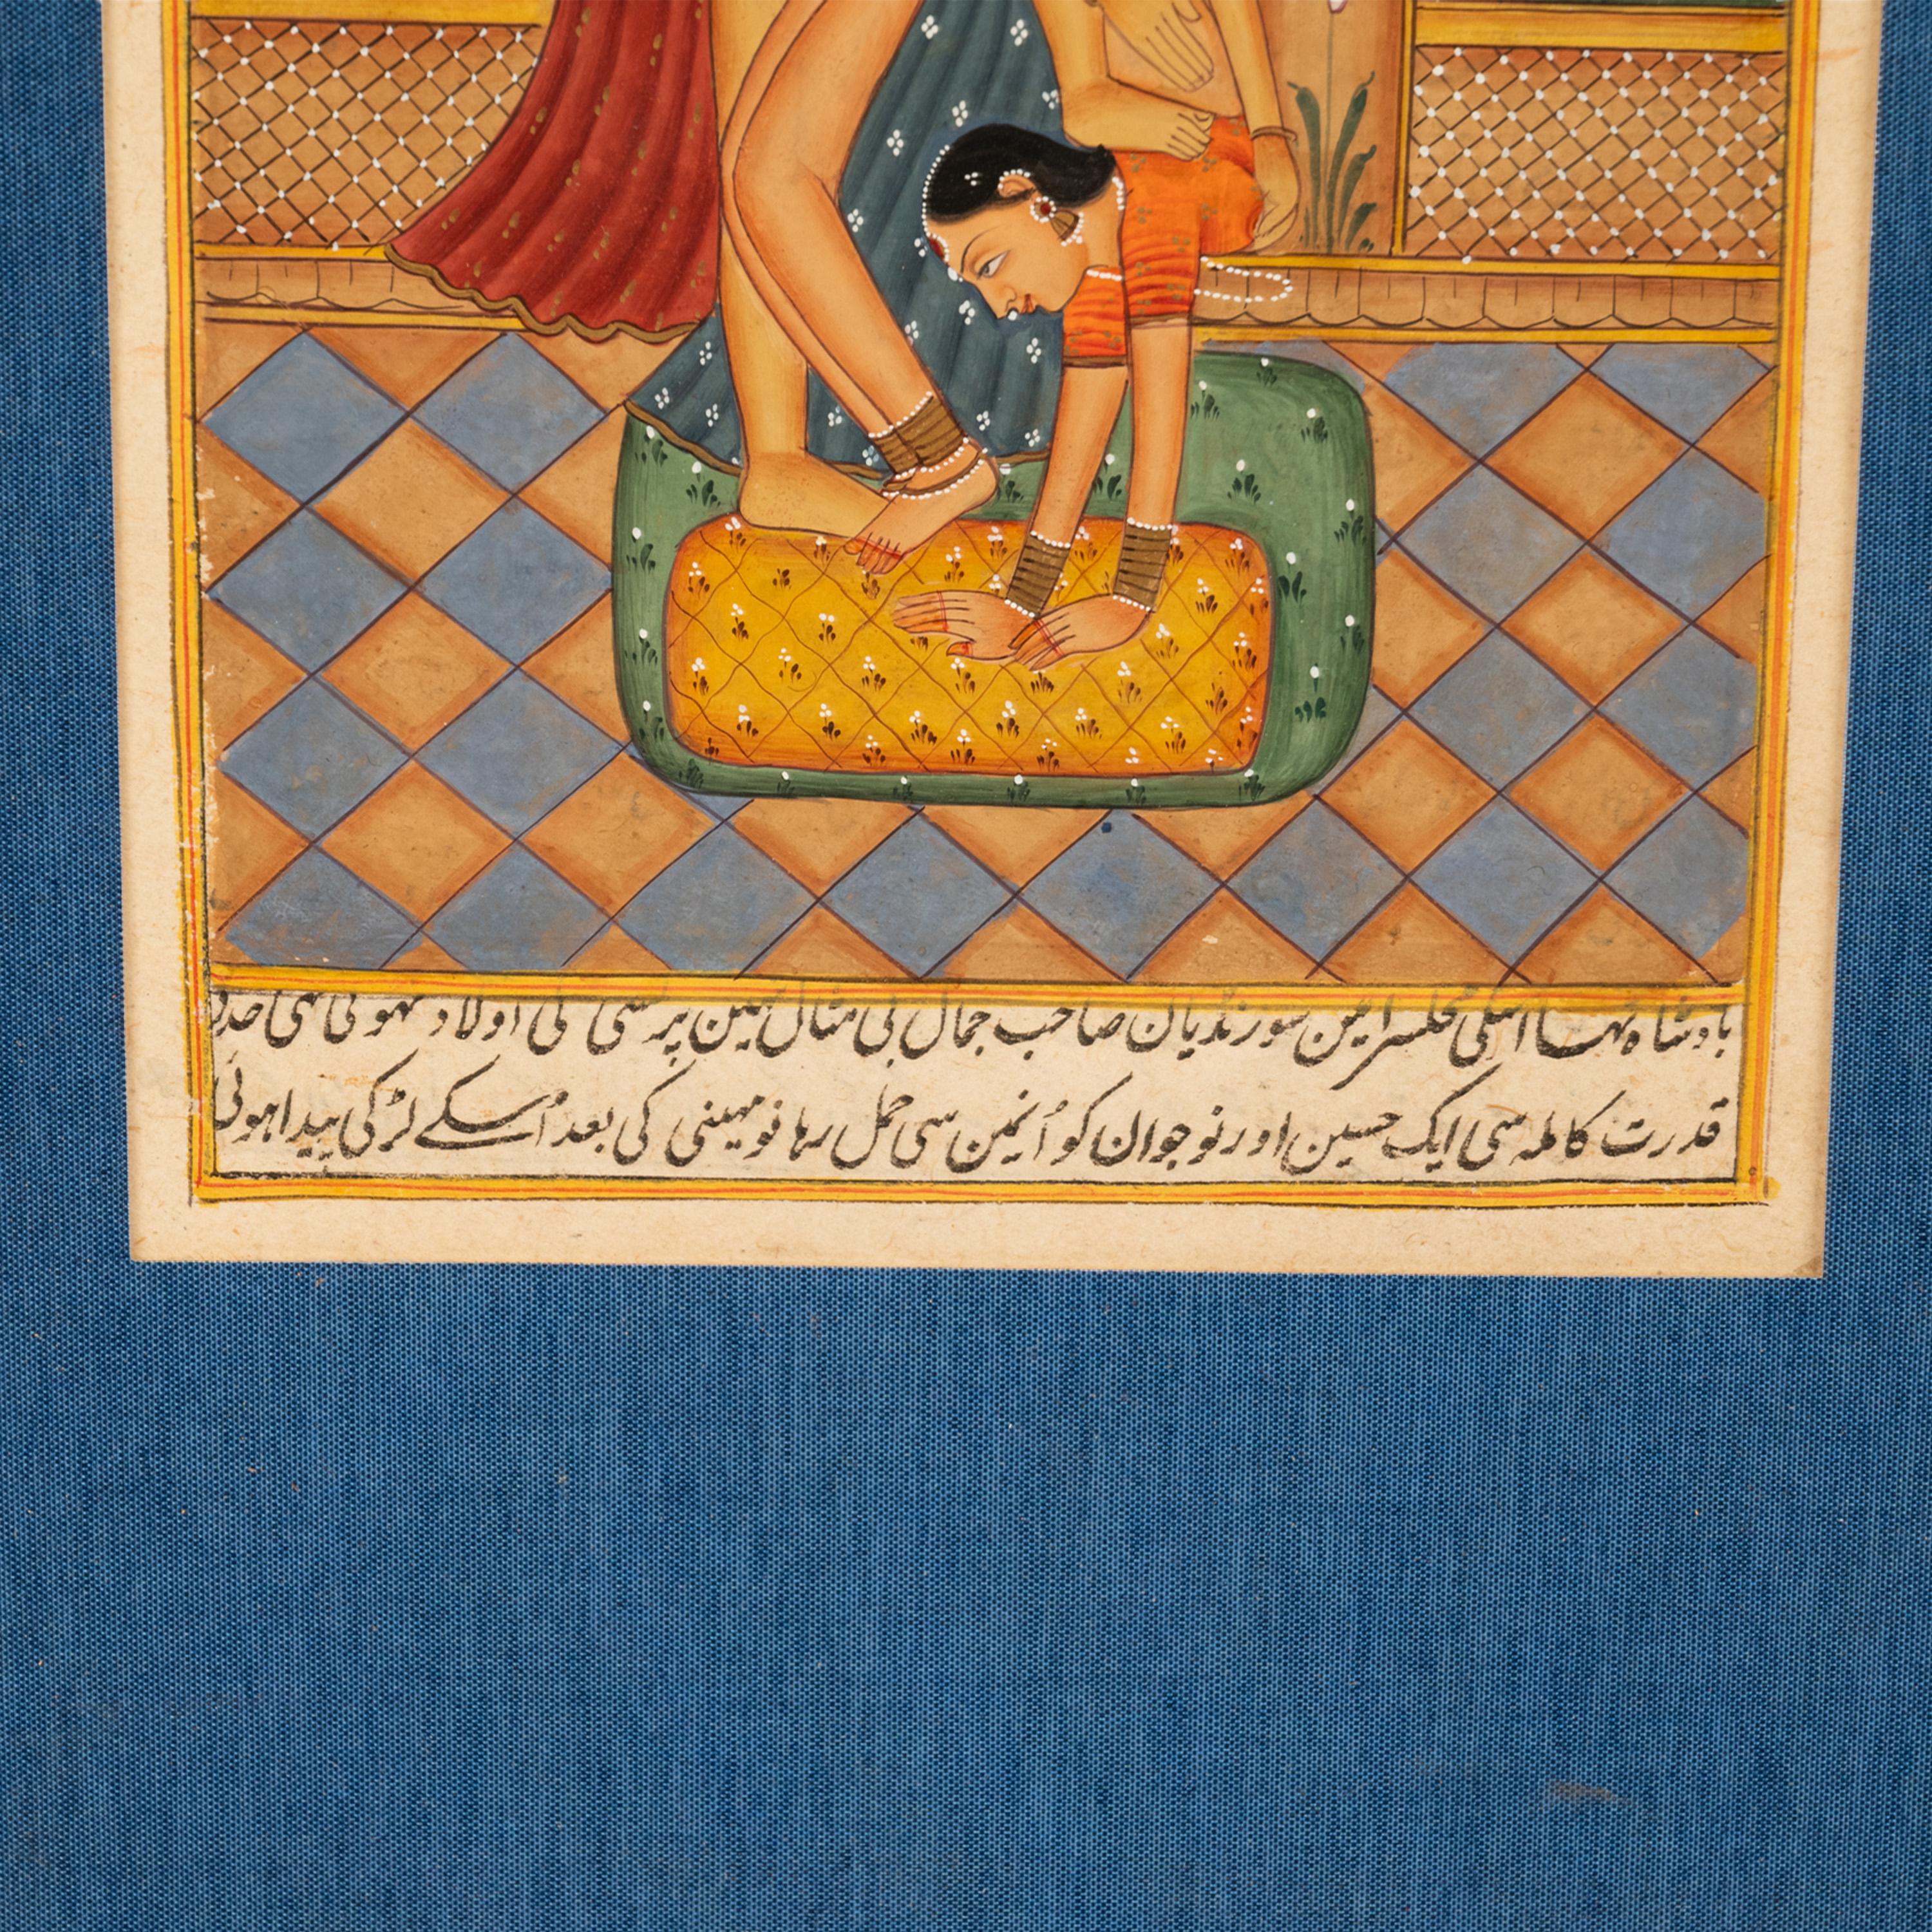 بادشاہ تہا اسکی محلسرا مین سو رنڈیان صاحب جمال بی مثال تہین پر کسی کی اولاد نہوئی تہی
قدرت کاملہ سی ایک حسین اور نوجوان کو اُنمین سی حمل رہا نو مہینی کی بعد اُسکے لڑکی پیدا ہوئی